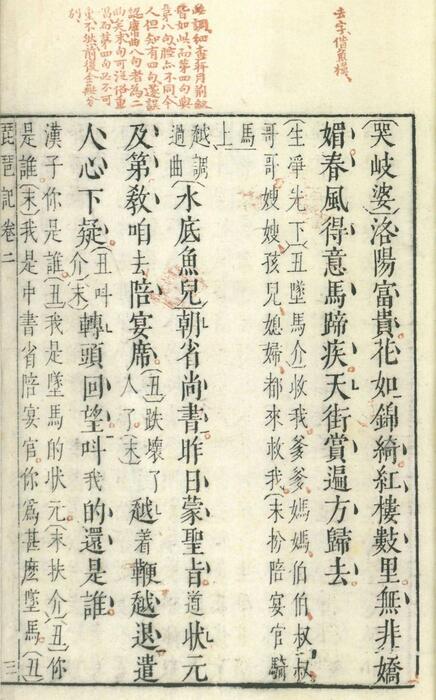 去字借魚模
此調細查拜月荊釵
皆如此而第四句與
第八句腔亦不同今
人但知有四句遂誤
認舊曲八句者為二
曲矣末句可從俗重
唱而第四句必不可
重不然前後全無分
別
(哭岐婆)洛陽富貴花如錦綺紅樓數里無非嬌
媚春風得意馬蹄疾天街賞遍方歸去
(生淨先下)(丑墜馬介)救我爹爹媽媽伯伯叔叔
哥哥嫂嫂孩兒媳婦都來救我(末扮陪宴官騎
馬上
越調過曲(水底魚兒)朝省尚書昨日蒙聖旨道狀元
及第教咱去陪宴席(丑)跌壞了人了(末)越着鞭越退遣
人心下疑(丑叫介)(末)轉頭回望叫我的還是誰
漢子你是誰(丑)我是墜馬的狀元(末扶介)(丑)你
是誰(末)我是中書省陪宴官你爲甚麽墜馬(丑
琵琶記卷二 三